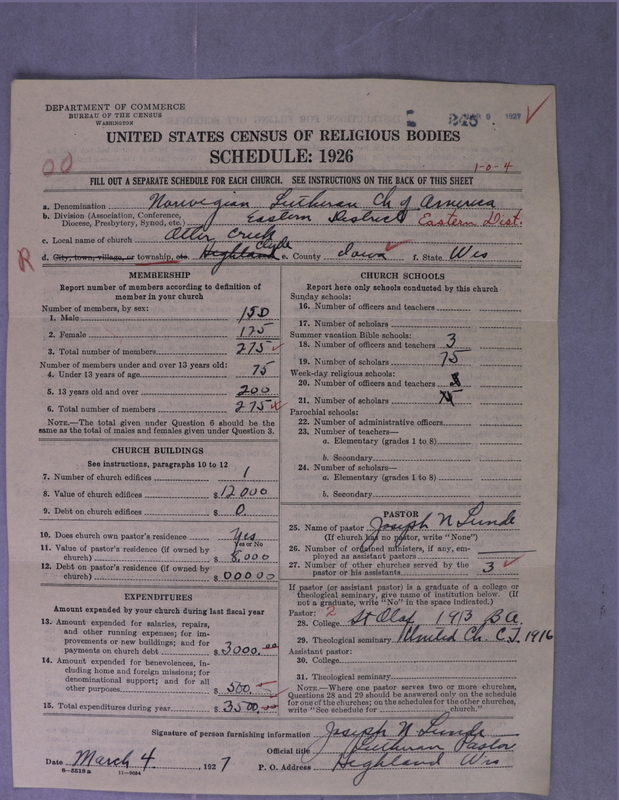 DEPARTMENT OF COMMERCE
BUREAU OF THE CENSUS
WASHINGTON
245 9 1927
UNITED STATES CENSUS OF RELIGIOUS BODIES
SCHEDULE: 1926
00
1-0-4
FILL OUT A SEPARATE SCHEDULE FOR EACH CHURCH. SEE INSTRUCTIONS ON THE BACK OF THIS SHEET
a. Denomination Norwegian Lutheran Ch of America
b. Division (Association, Conference, Diocese, Presbytery, Synod, etc.) Eastern District Eastern Dist.
c. Local name of church Otter Creek
Clyde
R d. City, town, village, or township, etc. Highland e. County Iowa f. State Wis
MEMBERSHIP
Report number of members according to definition of
member in your church
Number of members, by sex:
1. Male 150
2. Female 125
3. Total number of members 275
Number of members under and over 13 years old:
4. Under 13 years of age 75
5. 13 years old and over 200
6. Total number of members 275
NOTE.—The total given under Question 6 should be
same as the total of males and females given under Question 3.
CHURCH BUILDINGS
See instructions, paragraphs 10 to 12
7. Number of church edifices 1
8. Value of church edifices $12000
9. Debt on church edifices $ 0
10. Does church own pastor's residence? Yes
Yes or No
11. Value of pastor's residence (if owned by
church) $ 8,000
12. Debt on pastor's residence (if owned by
church) $ 00000
EXPENDITURES
Amount expended by your church during last fiscal year
13. Amount expended for salaries, repairs,
and other running expenses; for im-
provements or new buildings; and for
payments on church debt $ 3000.00
14. Amount expended for benevolences, in-
cluding home and foreign missions; for
denominational support; and for all
other purposes $ 500.
15. Total expenditures during year $ 3500.
CHURCH SCHOOLS
Report here only schools conducted by this church
Sunday schools:
16. Number of officers and teachers
17. Number of scholars
Summer vacation Bible schools:
18. Number of officers and teachers 3
19. Number of scholars 75
Week-day religious schools:
20. Number of officers and teachers
21. Number of scholars
Parochial schools:
22. Number of administrative officers
23. Number of teachers—
a. Elementary (grades 1 to 8)
b. Secondary
24. Number of scholars—
a. Elementary (grades 1 to 8)
b. Secondary
PASTOR
25. Name of pastor Joseph N Lunde
(If church has no pastor, write "None")
26. Number of ordained ministers, if any, em-
ployed as assistant pastors
27. Number of other churches served by the
pastor or his assistants 3
If pastor (or assistant pastor) is a graduate of a college or
theological seminary, give name of institution below. (If
not a graduate, write "No" in the space indicated.)
Pastor: 2
28. College St Olaf 1913 B.A.
29. Theological seminary United Ch. C.T. 1916
Assistant pastor:
30. College
31. Theological seminary
NOTE.—Where one pastor serves two or more churches,
Questions 28 and 29 should be answered only on the schedule
for one of the churches; on the schedules for the other churches,
write "See schedule for church."
Signature of person furnishing information Joseph N Lunde
Official title Lutheran Pastor
Date March 4, 1927 P. O. Address Highland Wis
8-5518a 11-9034